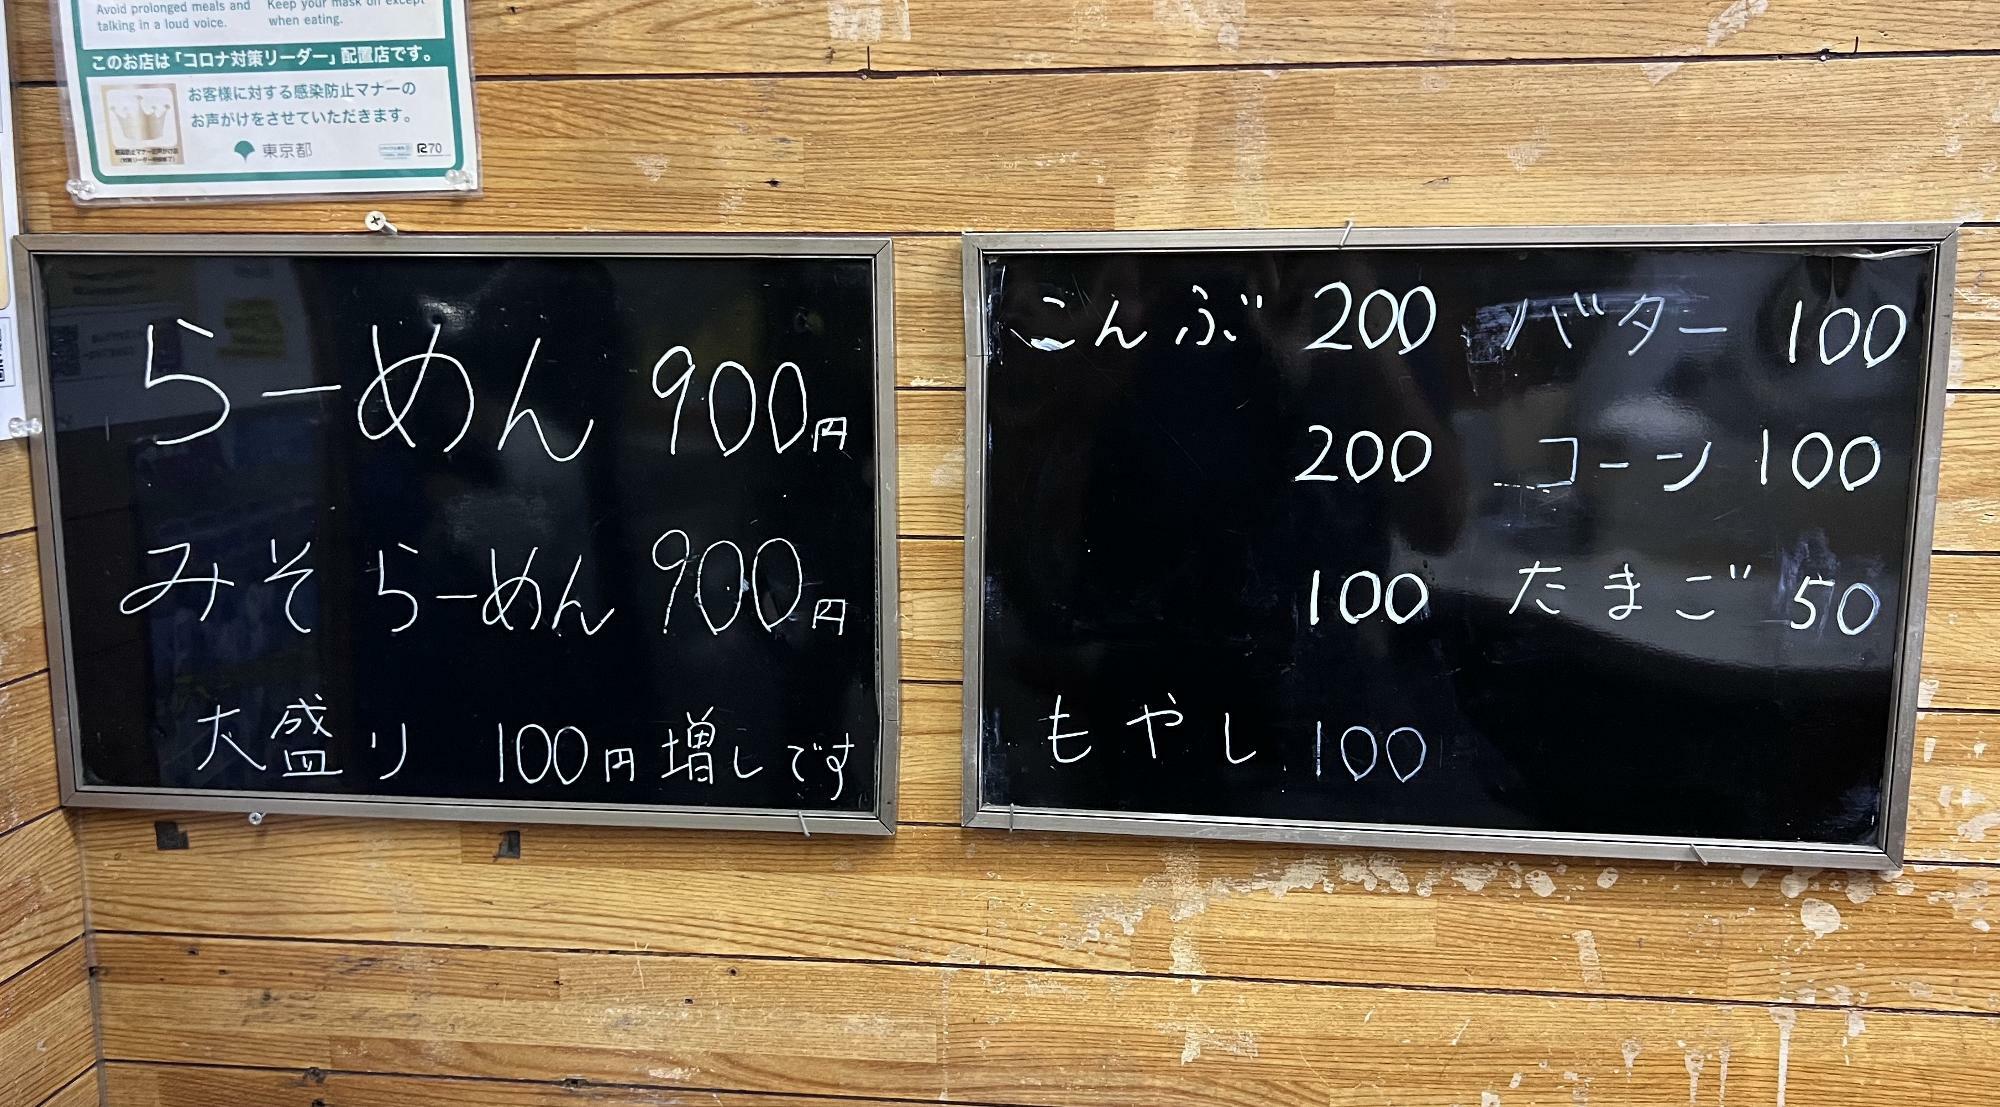 Avoid prolonged meals and talking in a loud voice.
Keep your mask on except when eating.
このお店は「コロナ対策リーダー」配置店です。
お客様に対する感染防止マナーの
お声がけをさせていただきます。
東京都
R70
らーめん 900円
みそらーめん 900円
大盛り 100円増しです
こんぶ 200 バター 100
200 コーン 100
100 たまご 50
もやし 100